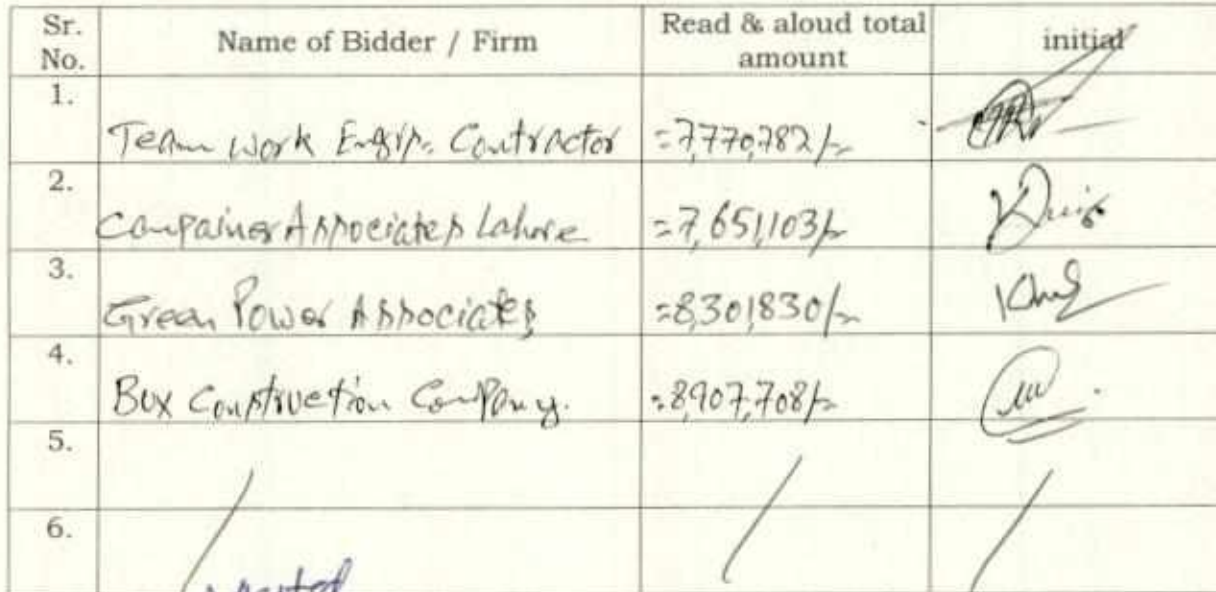 Sr. No. Name of Bidder / Firm Read & aloud total amount initial
1. Team work Engrg. Contractor =7,770,782/-
2. Associates Lahore =7,651,103/-
3. Green Power Associates =8,301,830/-
4. Bux Construction Company. =8,907,708/-
5.
6.